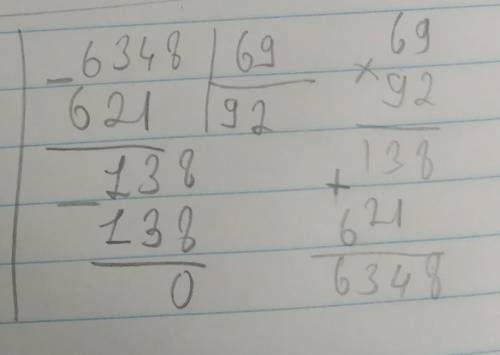 -6348 | 69
621 | 92
-138
138
0
× 69
92
138
+
621
6348